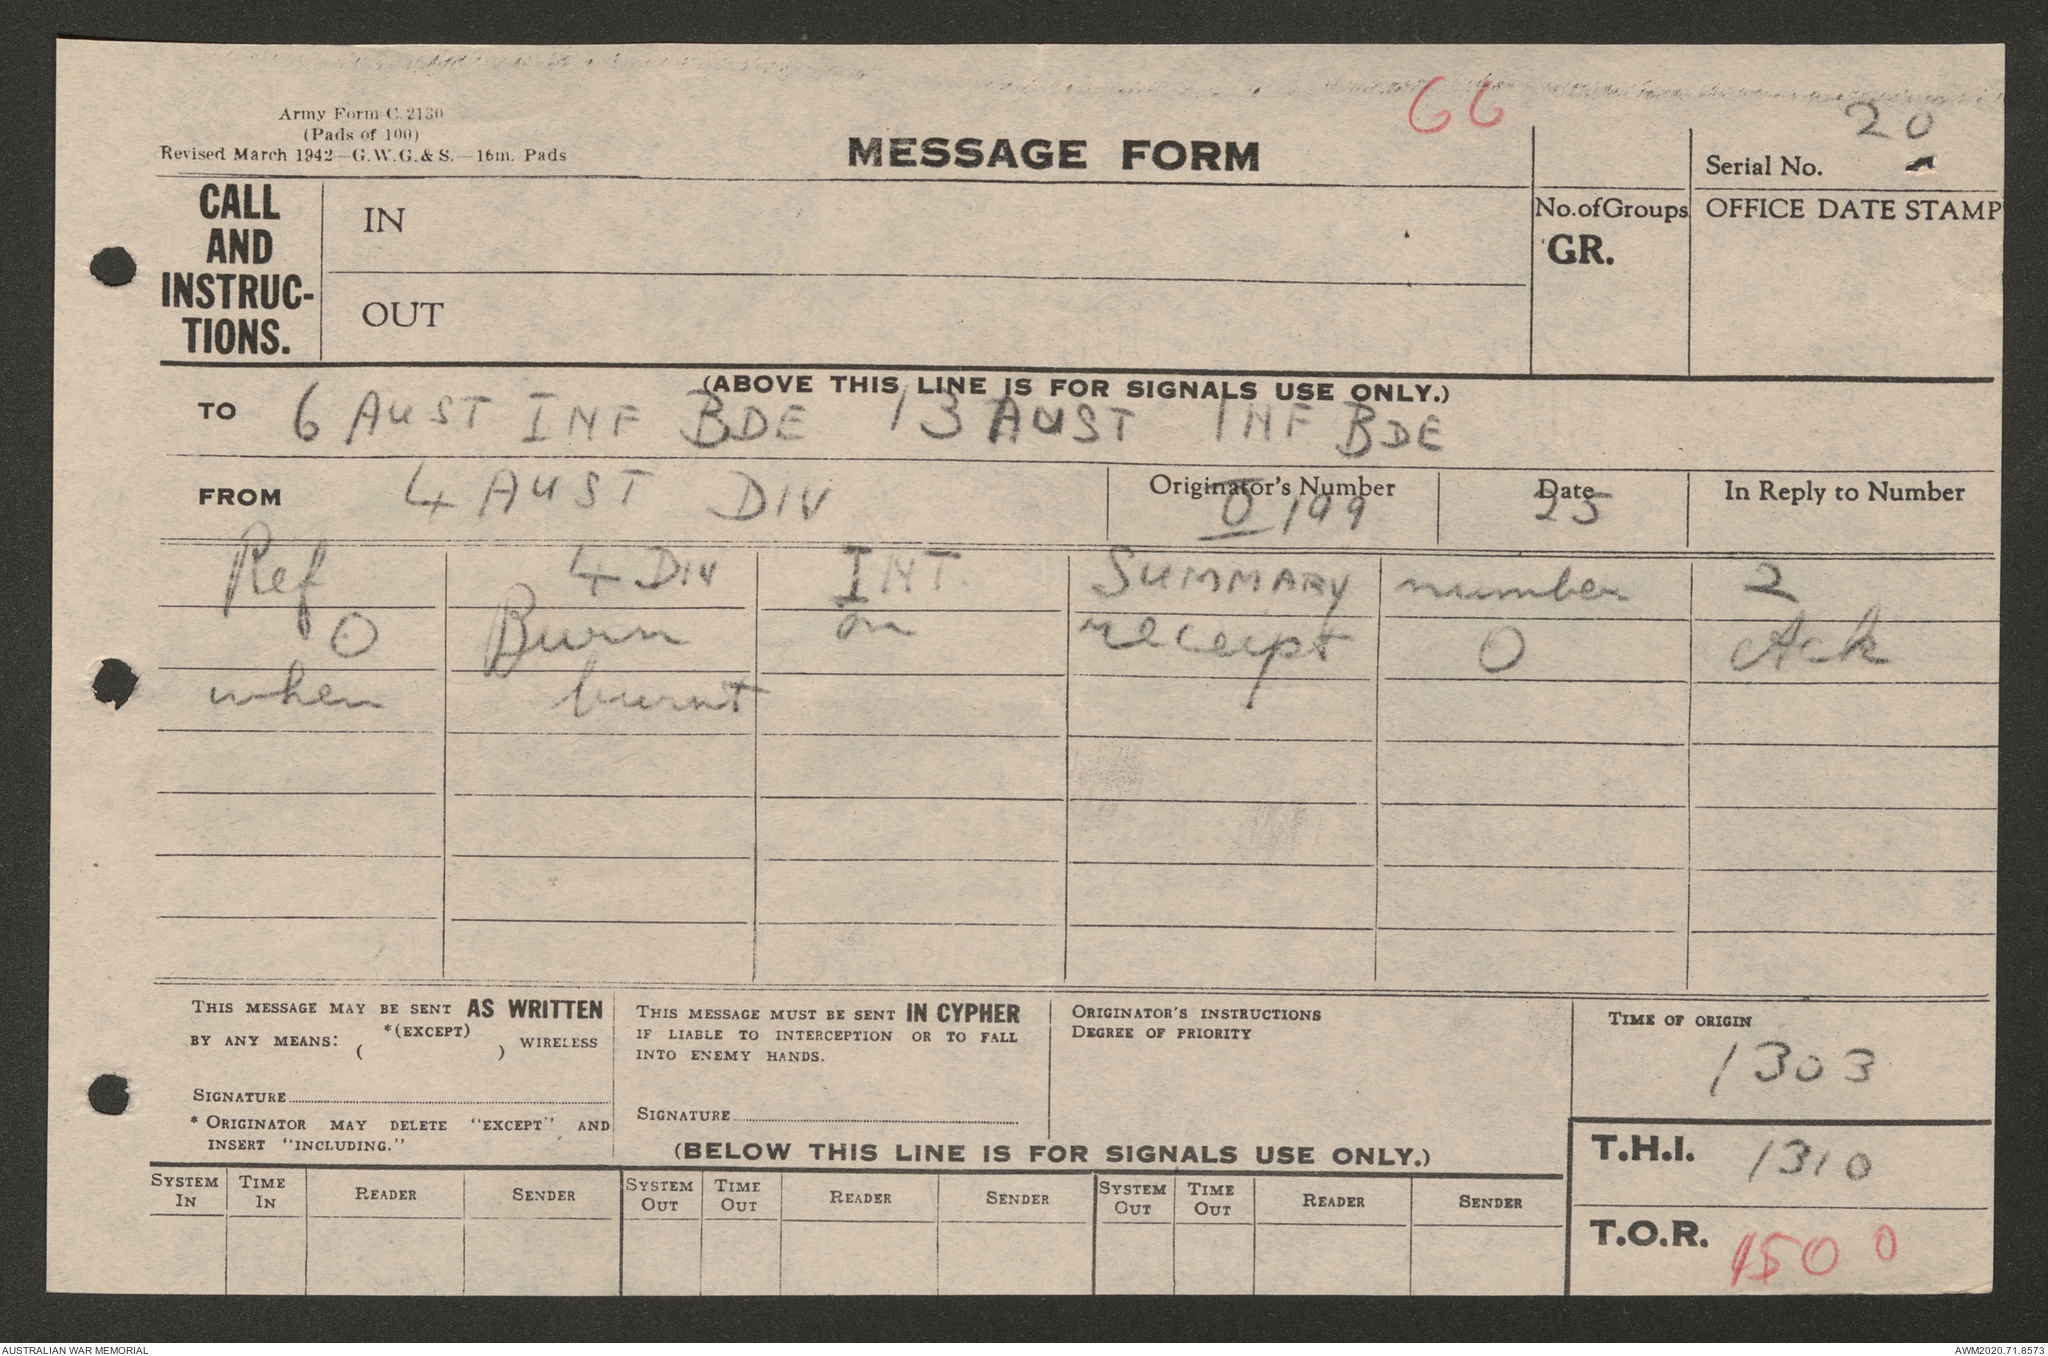 Army Form C. 2130
(Pads of 100)
Revised March 1942—G.W.G.& S.—16m. Pads
MESSAGE FORM
66
20
Serial No.
CALL AND INSTRUC-TIONS.
IN
OUT
No. of Groups
GR.
OFFICE DATE STAMP
(ABOVE THIS LINE IS FOR SIGNALS USE ONLY.)
TO 6 AUST INF BDE 13 AUST INF BDE
FROM 4 AUST DIV
Originator's Number
199
Date
25
In Reply to Number
Ref 4 DIV INT. SUMMARY number 2
O Burn on receipt O Ack
when burnt
THIS MESSAGE MAY BE SENT AS WRITTEN
BY ANY MEANS: *(EXCEPT) ( ) WIRELESS
SIGNATURE
* ORIGINATOR MAY DELETE "EXCEPT" AND
INSERT "INCLUDING."
THIS MESSAGE MUST BE SENT IN CYPHER
IF LIABLE TO INTERCEPTION OR TO FALL
INTO ENEMY HANDS.
SIGNATURE
ORIGINATOR'S INSTRUCTIONS
DEGREE OF PRIORITY
TIME OF ORIGIN
1303
(BELOW THIS LINE IS FOR SIGNALS USE ONLY.)
T.H.I. 1310
T.O.R. 1500
SYSTEM IN TIME IN READER SENDER SYSTEM OUT TIME OUT READER SENDER SYSTEM OUT TIME OUT READER SENDER
AUSTRALIAN WAR MEMORIAL
AWM2020.71.8573